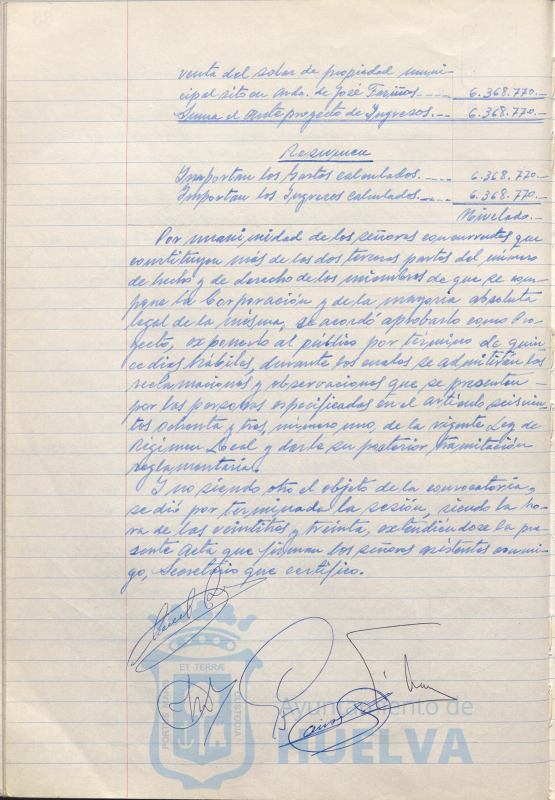 venta del solar de propiedad muni-
cipal sito en Avda. de José Fariñas---- 6.368.770.—
Suma el Anteproyecto de Ingresos.-- 6.368.770.—
Resumen
Importan los Gastos calculados.---- 6.368.770.—
Importan los Ingresos calculados.---- 6.368.770.—
Nivelado.—
Por unanimidad de los señores concurrentes que
constituyen más de las dos terceras partes del número
de hecho y de derecho de los miembros de que se com-
pone la Corporación y de la mayoría absoluta
legal de la misma, se acordó aprobarlo como Pro-
yecto, exponerlo al público por término de quin-
ce días hábiles, durante los cuales se admitirán las
reclamaciones y observaciones que se presenten
por las personas especificadas en el artículo seiscien-
tos ochenta y tres, número uno, de la vigente Ley de
Régimen Local y darle su posterior tramitación
reglamentaria.
Y no siendo otro el objeto de la convocatoria,
se dió por terminada la sesión, siendo la ho-
ra de las veintitres y treinta, extendiéndose la pre-
sente Acta que firman los señores asistentes conmi-
go, Secretario que certifico.
ET TERRÆ
PORTUS MARIS
CUSTODIA
Ayuntamiento de
HUELVA